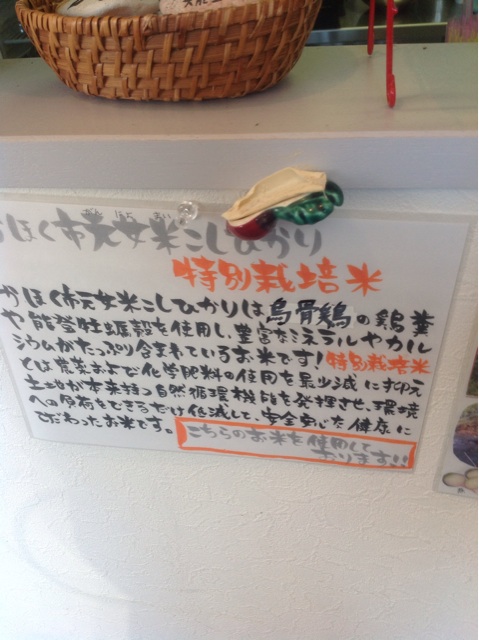 ほく市元女米こしひかり
特別栽培米
かほく市元女米こしひかりは烏骨鶏の鶏糞
や能登牡蠣殻を使用し、豊富なミネラルやカル
シウムがたっぷり含まれているお米です!特別栽培米
とは農薬および化学肥料の使用を最少減に抑え
土地が本来持つ自然循環機能を発揮させ、環境
への負荷をできるだけ低減して、安全安心な健康に
こだわったお米です。
こちらのお米を使用して
おります!!